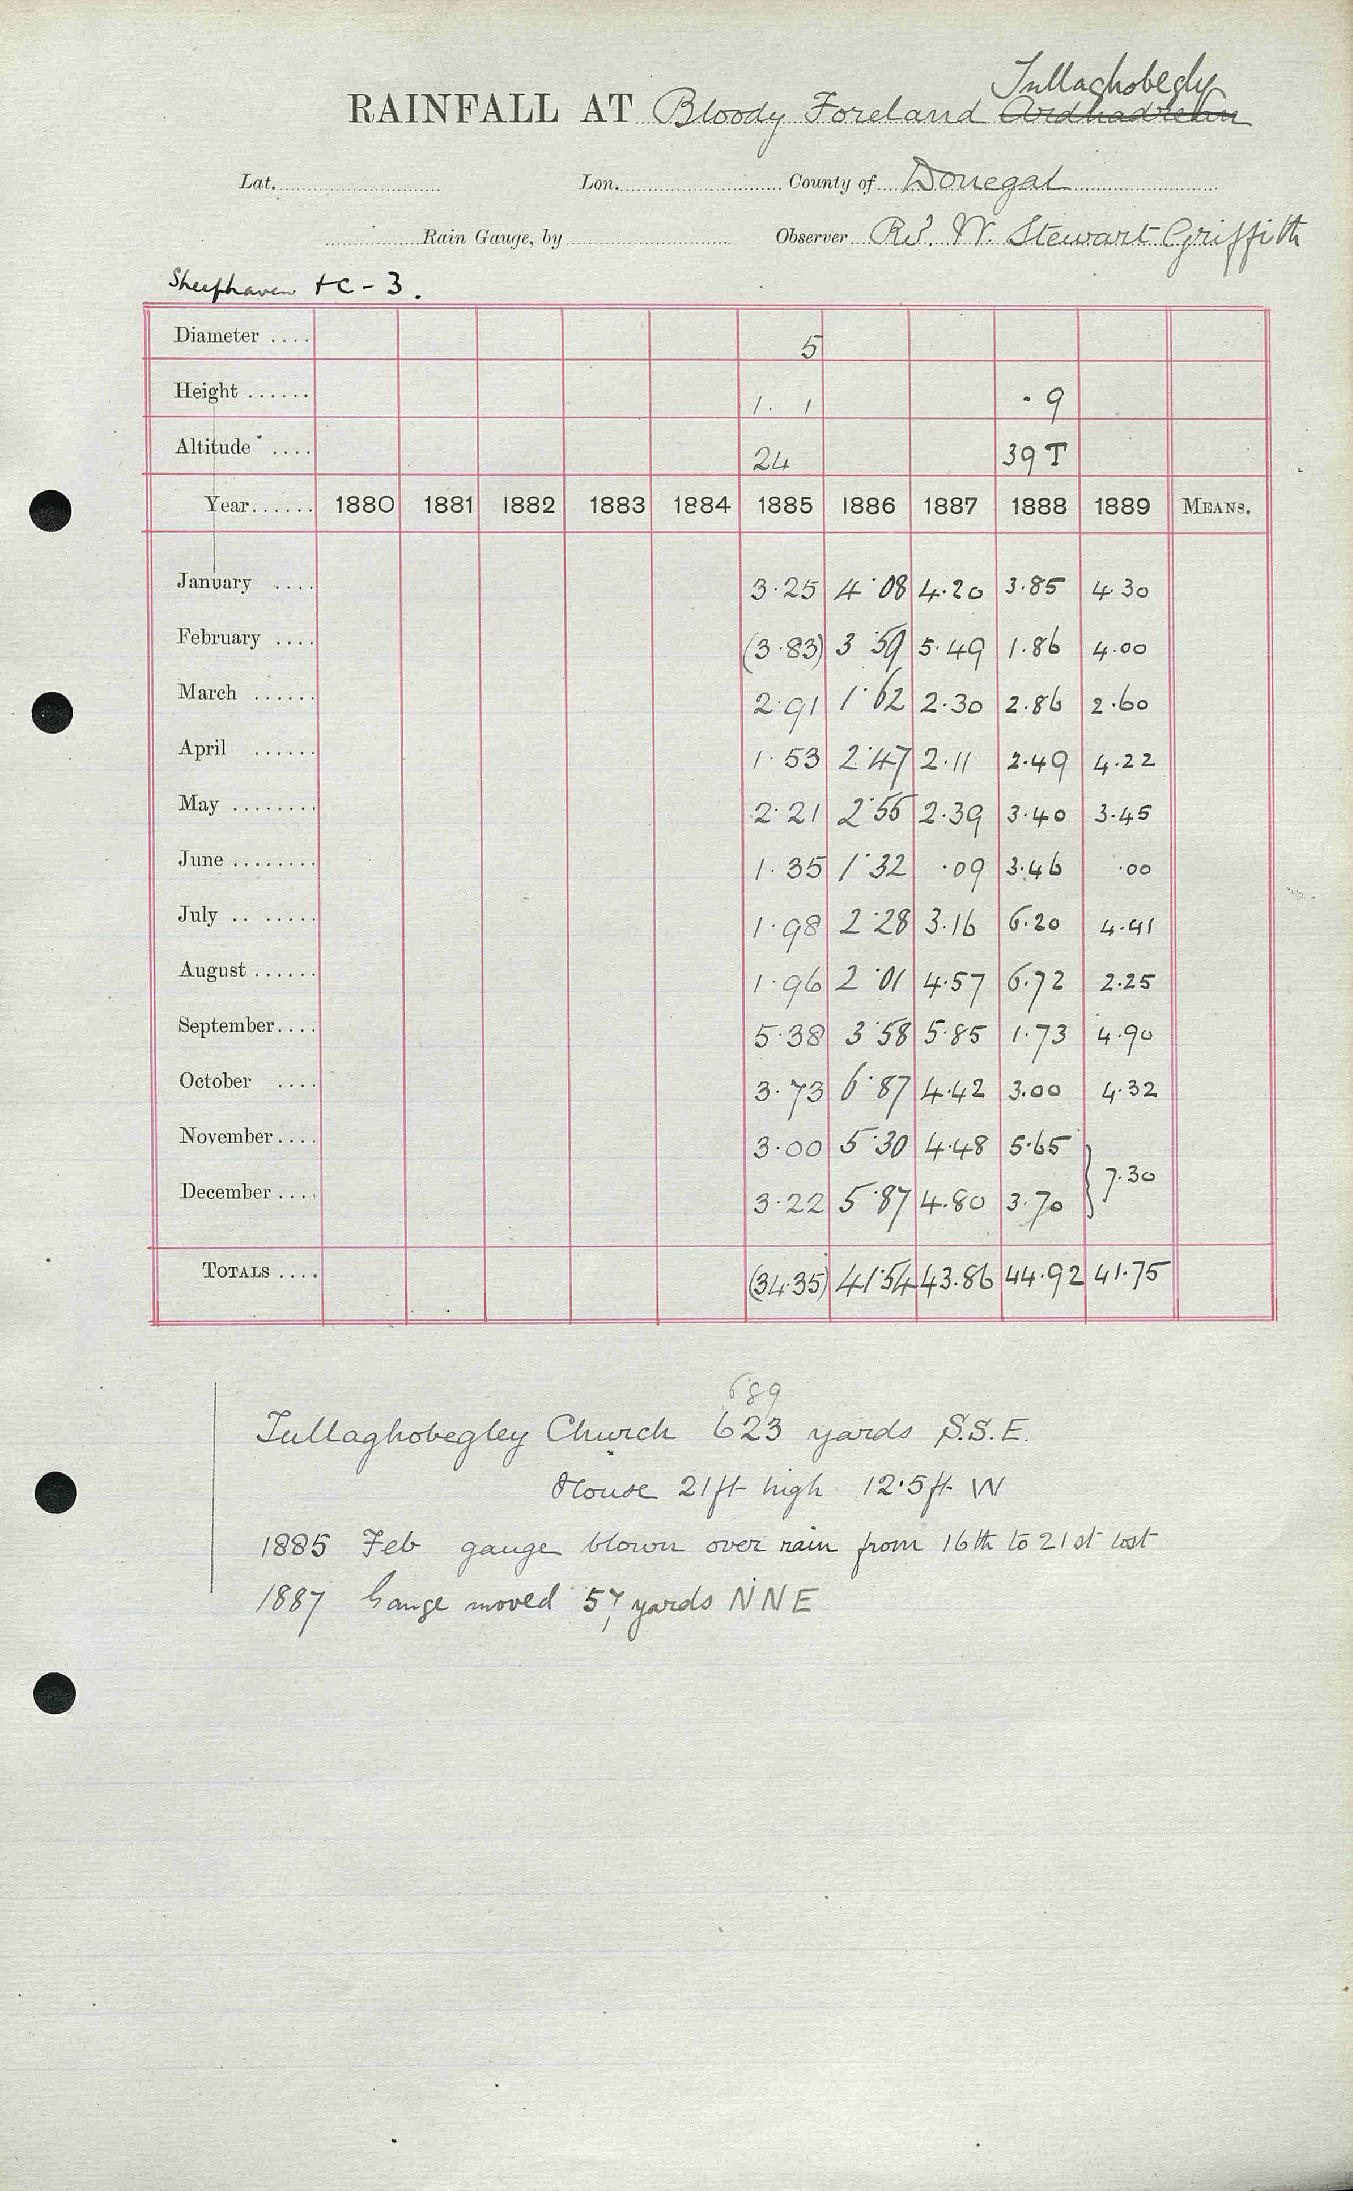 Tullaghobegly
RAINFALL AT Bloody Foreland
Lat. Lon. County of Donegal
Rain Gauge, by Observer Rd. W. Stewart Griffith
Sheephaven +C - 3.
Diameter .... 5
Height ...... 1. 1 ·9
Altitude .... 24 39 T
Year...... 1880 1881 1882 1883 1884 1885 1886 1887 1888 1889 MEANS.
January .... 3·25 4·08 4·20 3·85 4·30
February .... (3·83) 3·59 5·49 1·86 4·00
March ...... 2·91 1·62 2·30 2·86 2·60
April ...... 1·53 2·47 2·11 2·49 4·22
May ........ 2·21 2·55 2·39 3·40 3·45
June ........ 1·35 1·32 ·09 3·46 ·00
July .. ..... 1·98 2·28 3·16 6·20 4·41
August ...... 1·96 2·01 4·57 6·72 2·25
September.... 5·38 3·58 5·85 1·73 4·90
October .... 3·73 6·87 4·42 3·00 4·32
November.... 3·00 5·30 4·48 5·65
} 7·30
December.... 3·22 5·87 4·80 3·70
TOTALS .... (34·35) 41·54 43·86 44·92 41·75
689
Tullaghobegley Church 623 yards S.S.E.
House 21ft high 12·5ft W
1885 Feb gauge blown over rain from 16th to 21st lost
1887 Gauge moved 57 yards NNE